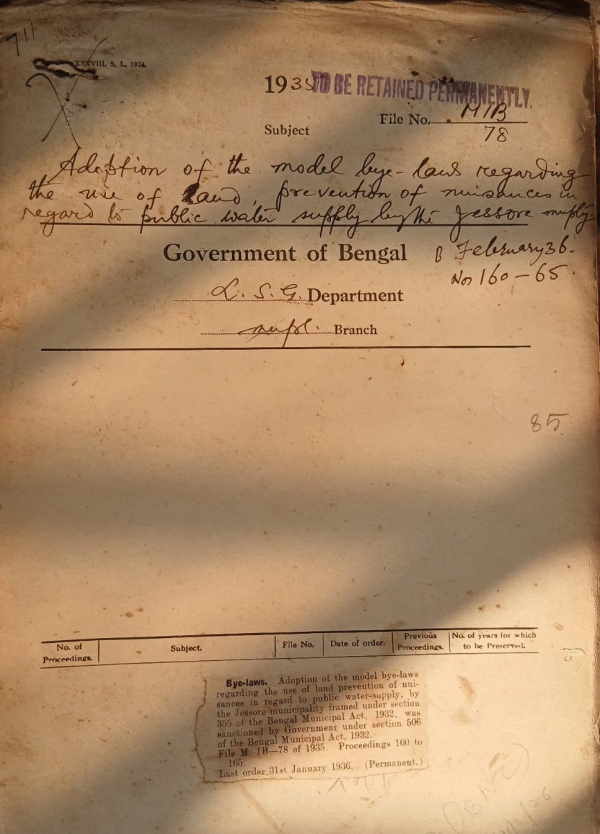 711
XXXVIII, S. L., 1924.
1935 TO BE RETAINED PERMANENTLY.
File No. M1B
78
Subject
Adoption of the model bye-laws regarding
the use of land, prevention of nuisances in
regard to public water supply by the Jessore muply
Government of Bengal B February 36.
Nos 160-65.
L. S. G. Department
mupl. Branch
85
No. of Proceedings. Subject. File No. Date of order. Previous Proceedings. No. of years for which to be Preserved.
Bye-laws. Adoption of the model bye-laws
regarding the use of land prevention of nui-
sances in regard to public water-supply, by
the Jessore municipality framed under section
355 of the Bengal Municipal Act, 1932, was
sanctioned by Government under section 506
of the Bengal Municipal Act, 1932.
File M. 1B—78 of 1935. Proceedings 160 to
165.
Last order 31st January 1936. (Permanent.)